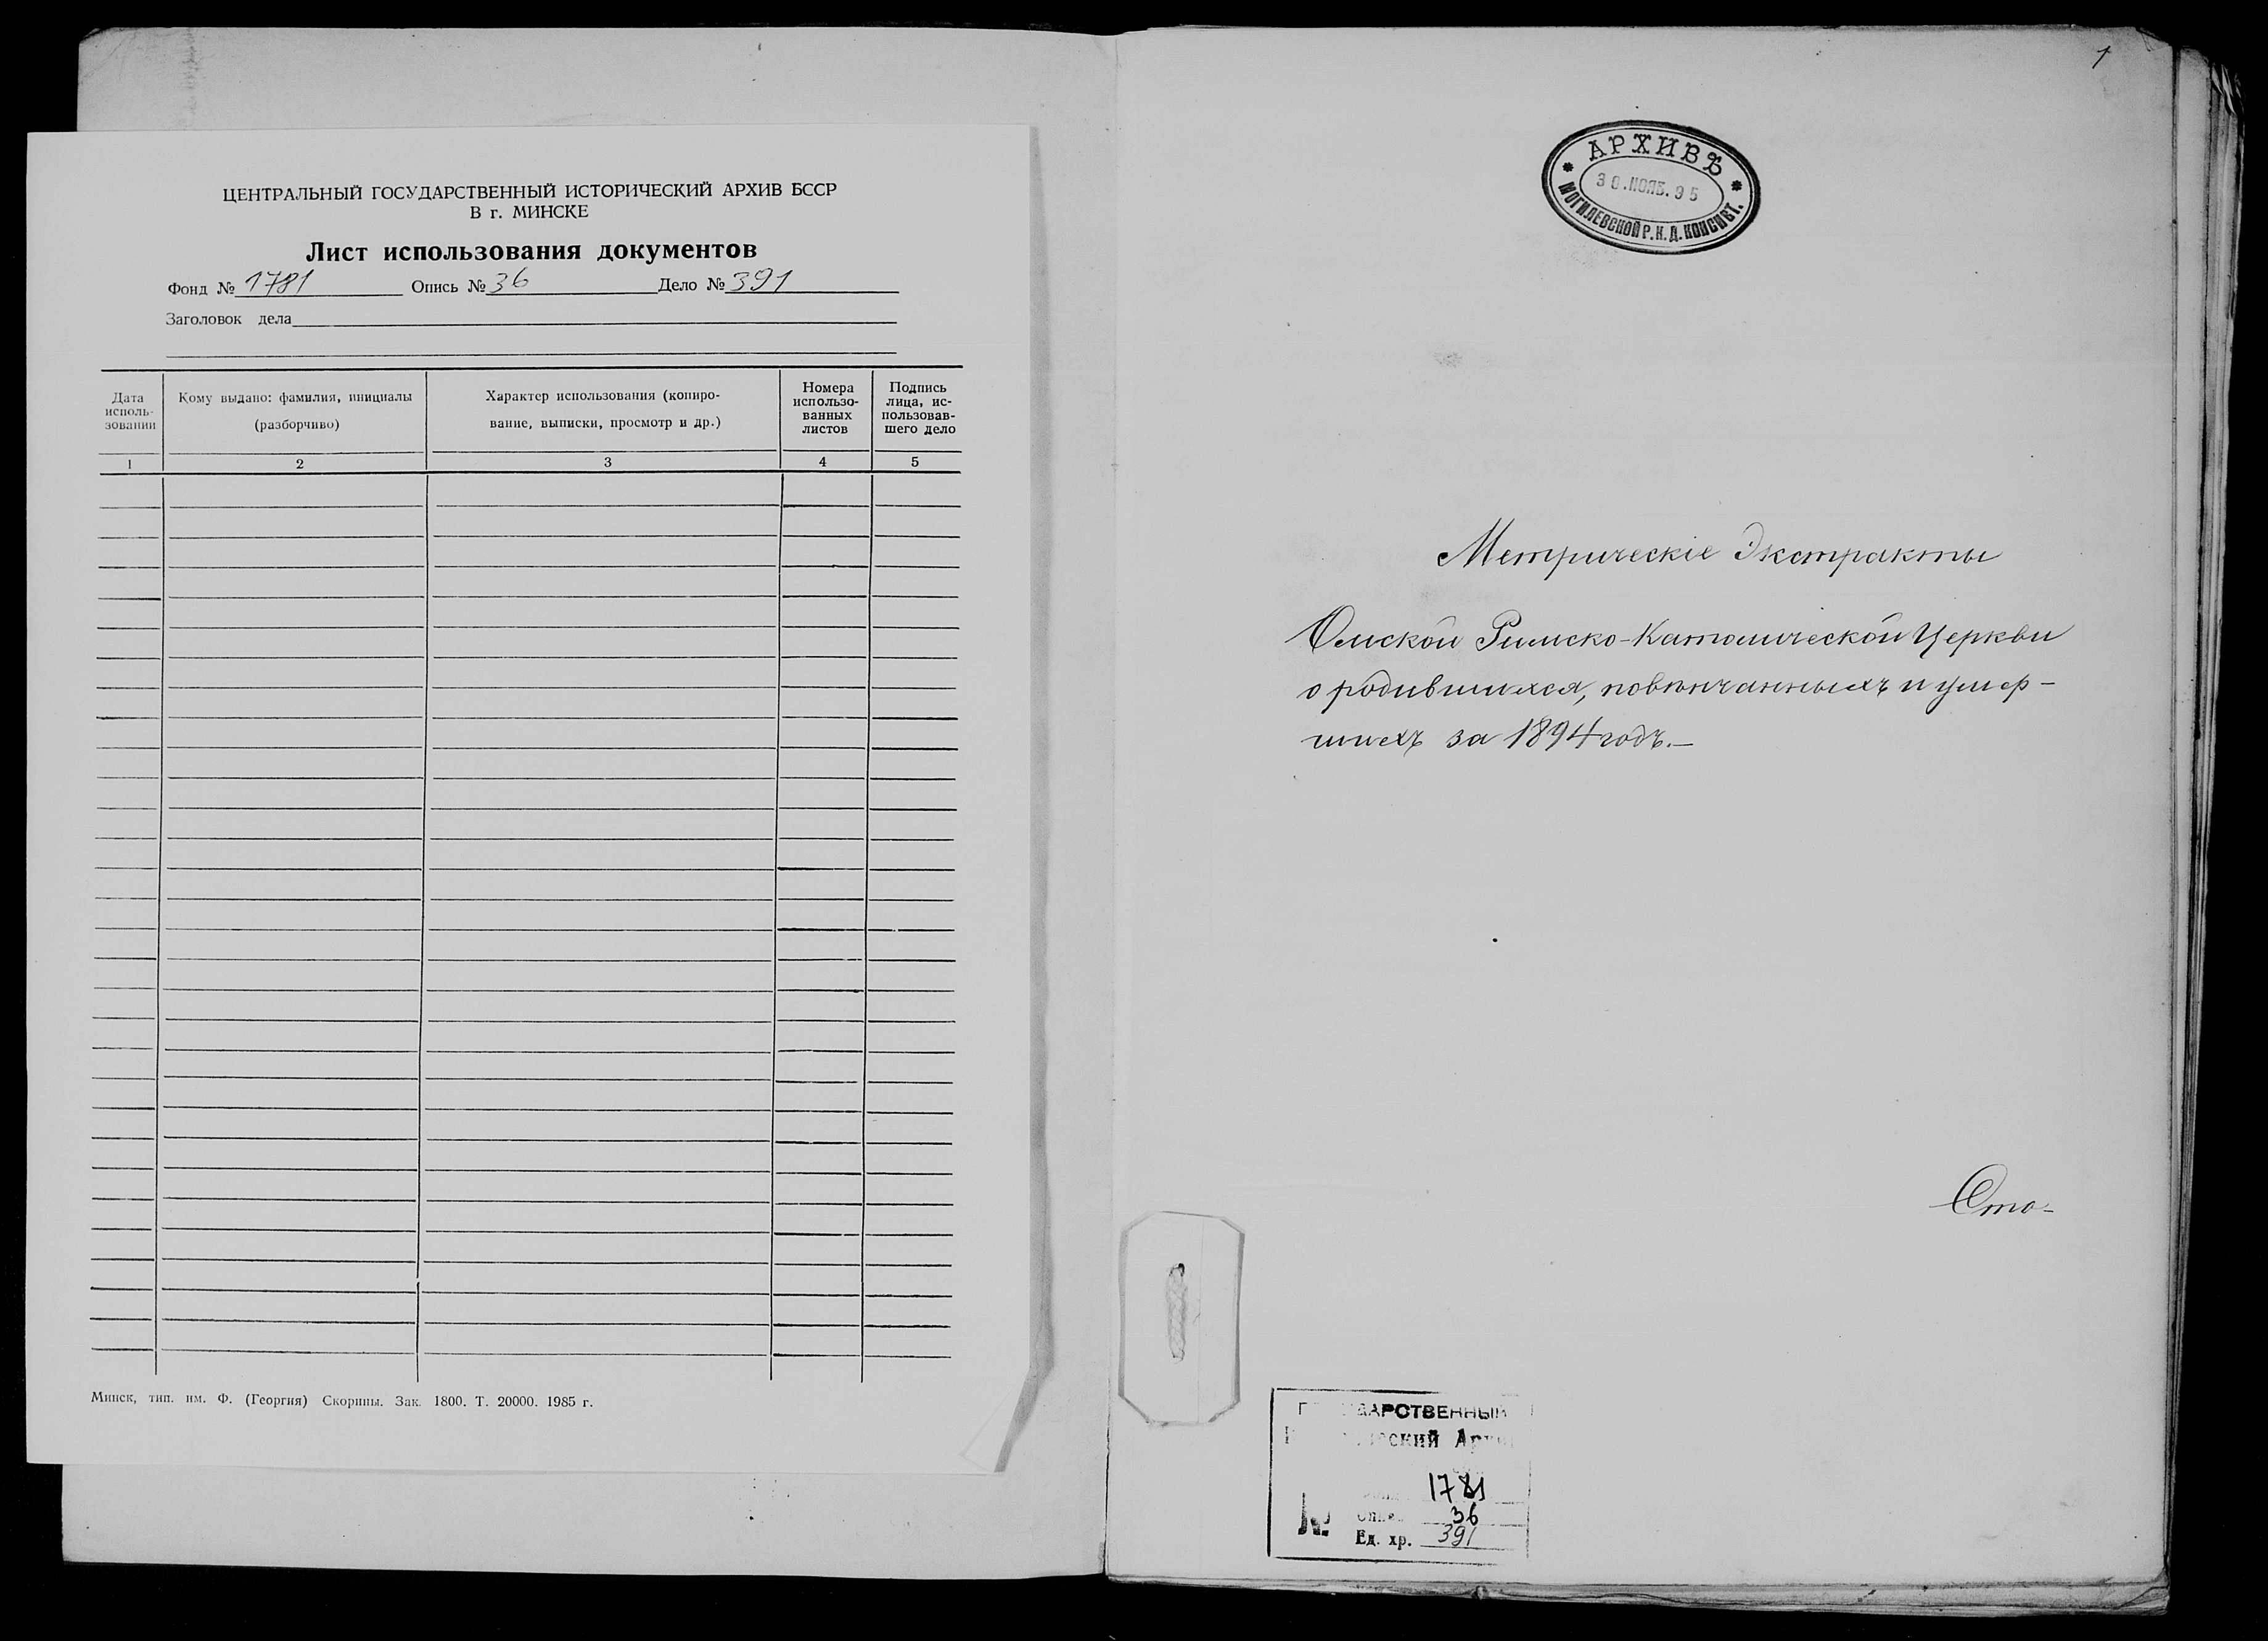 ЦЕНТРАЛЬНЫЙ ГОСУДАРСТВЕННЫЙ ИСТОРИЧЕСКИЙ АРХИВ БССР
В г. МИНСКЕ
Лист использования документов
Фонд № 1781 Опись № 36 Дело № 391
Заголовок дела
Дата
исполь-
зовании
Кому выдано: фамилия, инициалы
(разборчиво)
Характер использования (копиро-
вание, выписки, просмотр и др.)
Номера
использо-
ванных
листов
Подпись
лица, ис-
пользовав-
шего дело
1 2 3 4 5
Минск, тип. им. Ф. (Георгия) Скорины. Зак. 1800. Т. 20000. 1985 г.
1
АРХИВЪ
30.НОЯБ.95
МОГИЛЕВСКОЙ Р.К.Д. КОНСИСТ.
Метрическіе Экстракты
Омской Римско-Католической Церкви
о родившихся, повѣнчанныхъ и умер-
шихъ за 1894 годъ.—
Сто-
1781
№
36
Ед. хр. 391